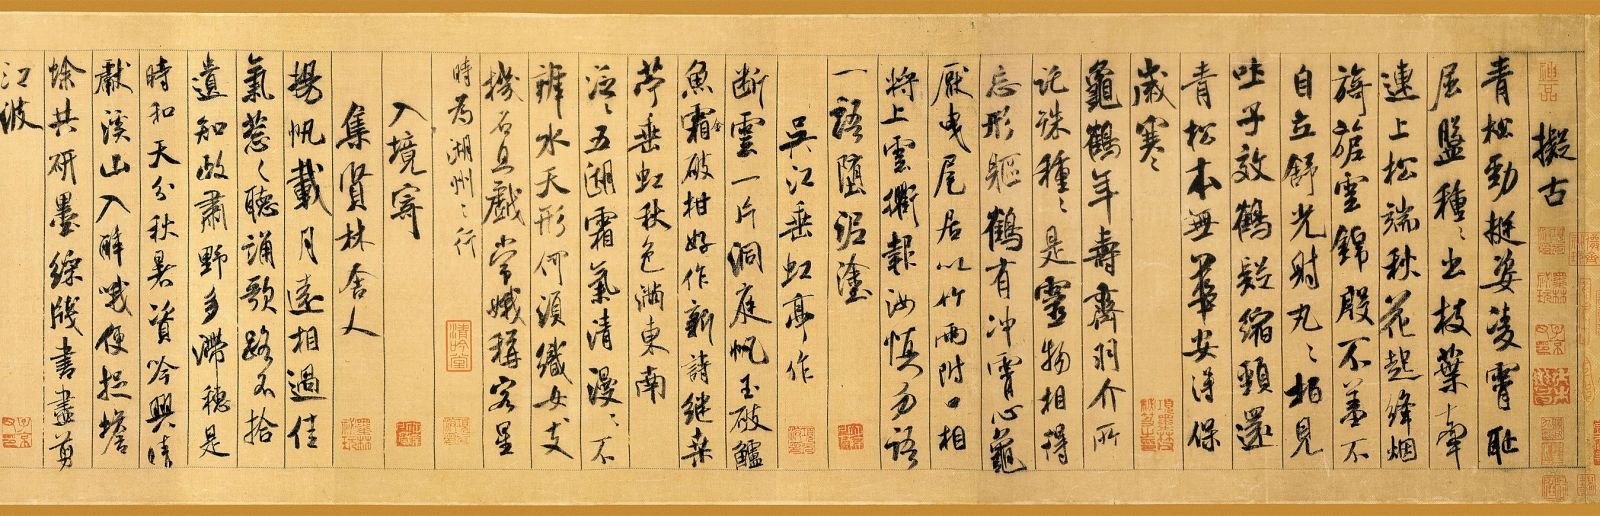 擬古
青松勁挺姿凌霄恥
屈盤種種出枝葉牽
連上松端秋花起絳烟
旖旎雲錦殷不羞不
自立舒光射丸丸柏見
吐子效鶴疑縮頸還
青松本無華安得保
歲寒
龜鶴年壽齊羽介所
託殊種種是靈物相得
忘形軀鶴有冲霄心龜
厭曳尾居以竹兩附口相
將上雲衢報汝慎勿語
一語墮泥塗
吳江垂虹亭作
斷雲一片洞庭帆玉破鱸
魚霜破柑好作新詩繼桑
苧垂虹秋色滿東南
泛泛五湖霜氣清漫漫不
辨水天形何須織女支
機石且戲常娥稱客星
時為湖州之行
入境寄
集賢林舍人
揚帆載月遠相過佳
氣蔥蔥聽誦歌路不拾
遺知政肅野多滯穗是
時和天分秋暑資吟興晴
獻溪山入醉哦便捉蟾
蜍共研墨綵牋書盡剪
江波
清吟堂